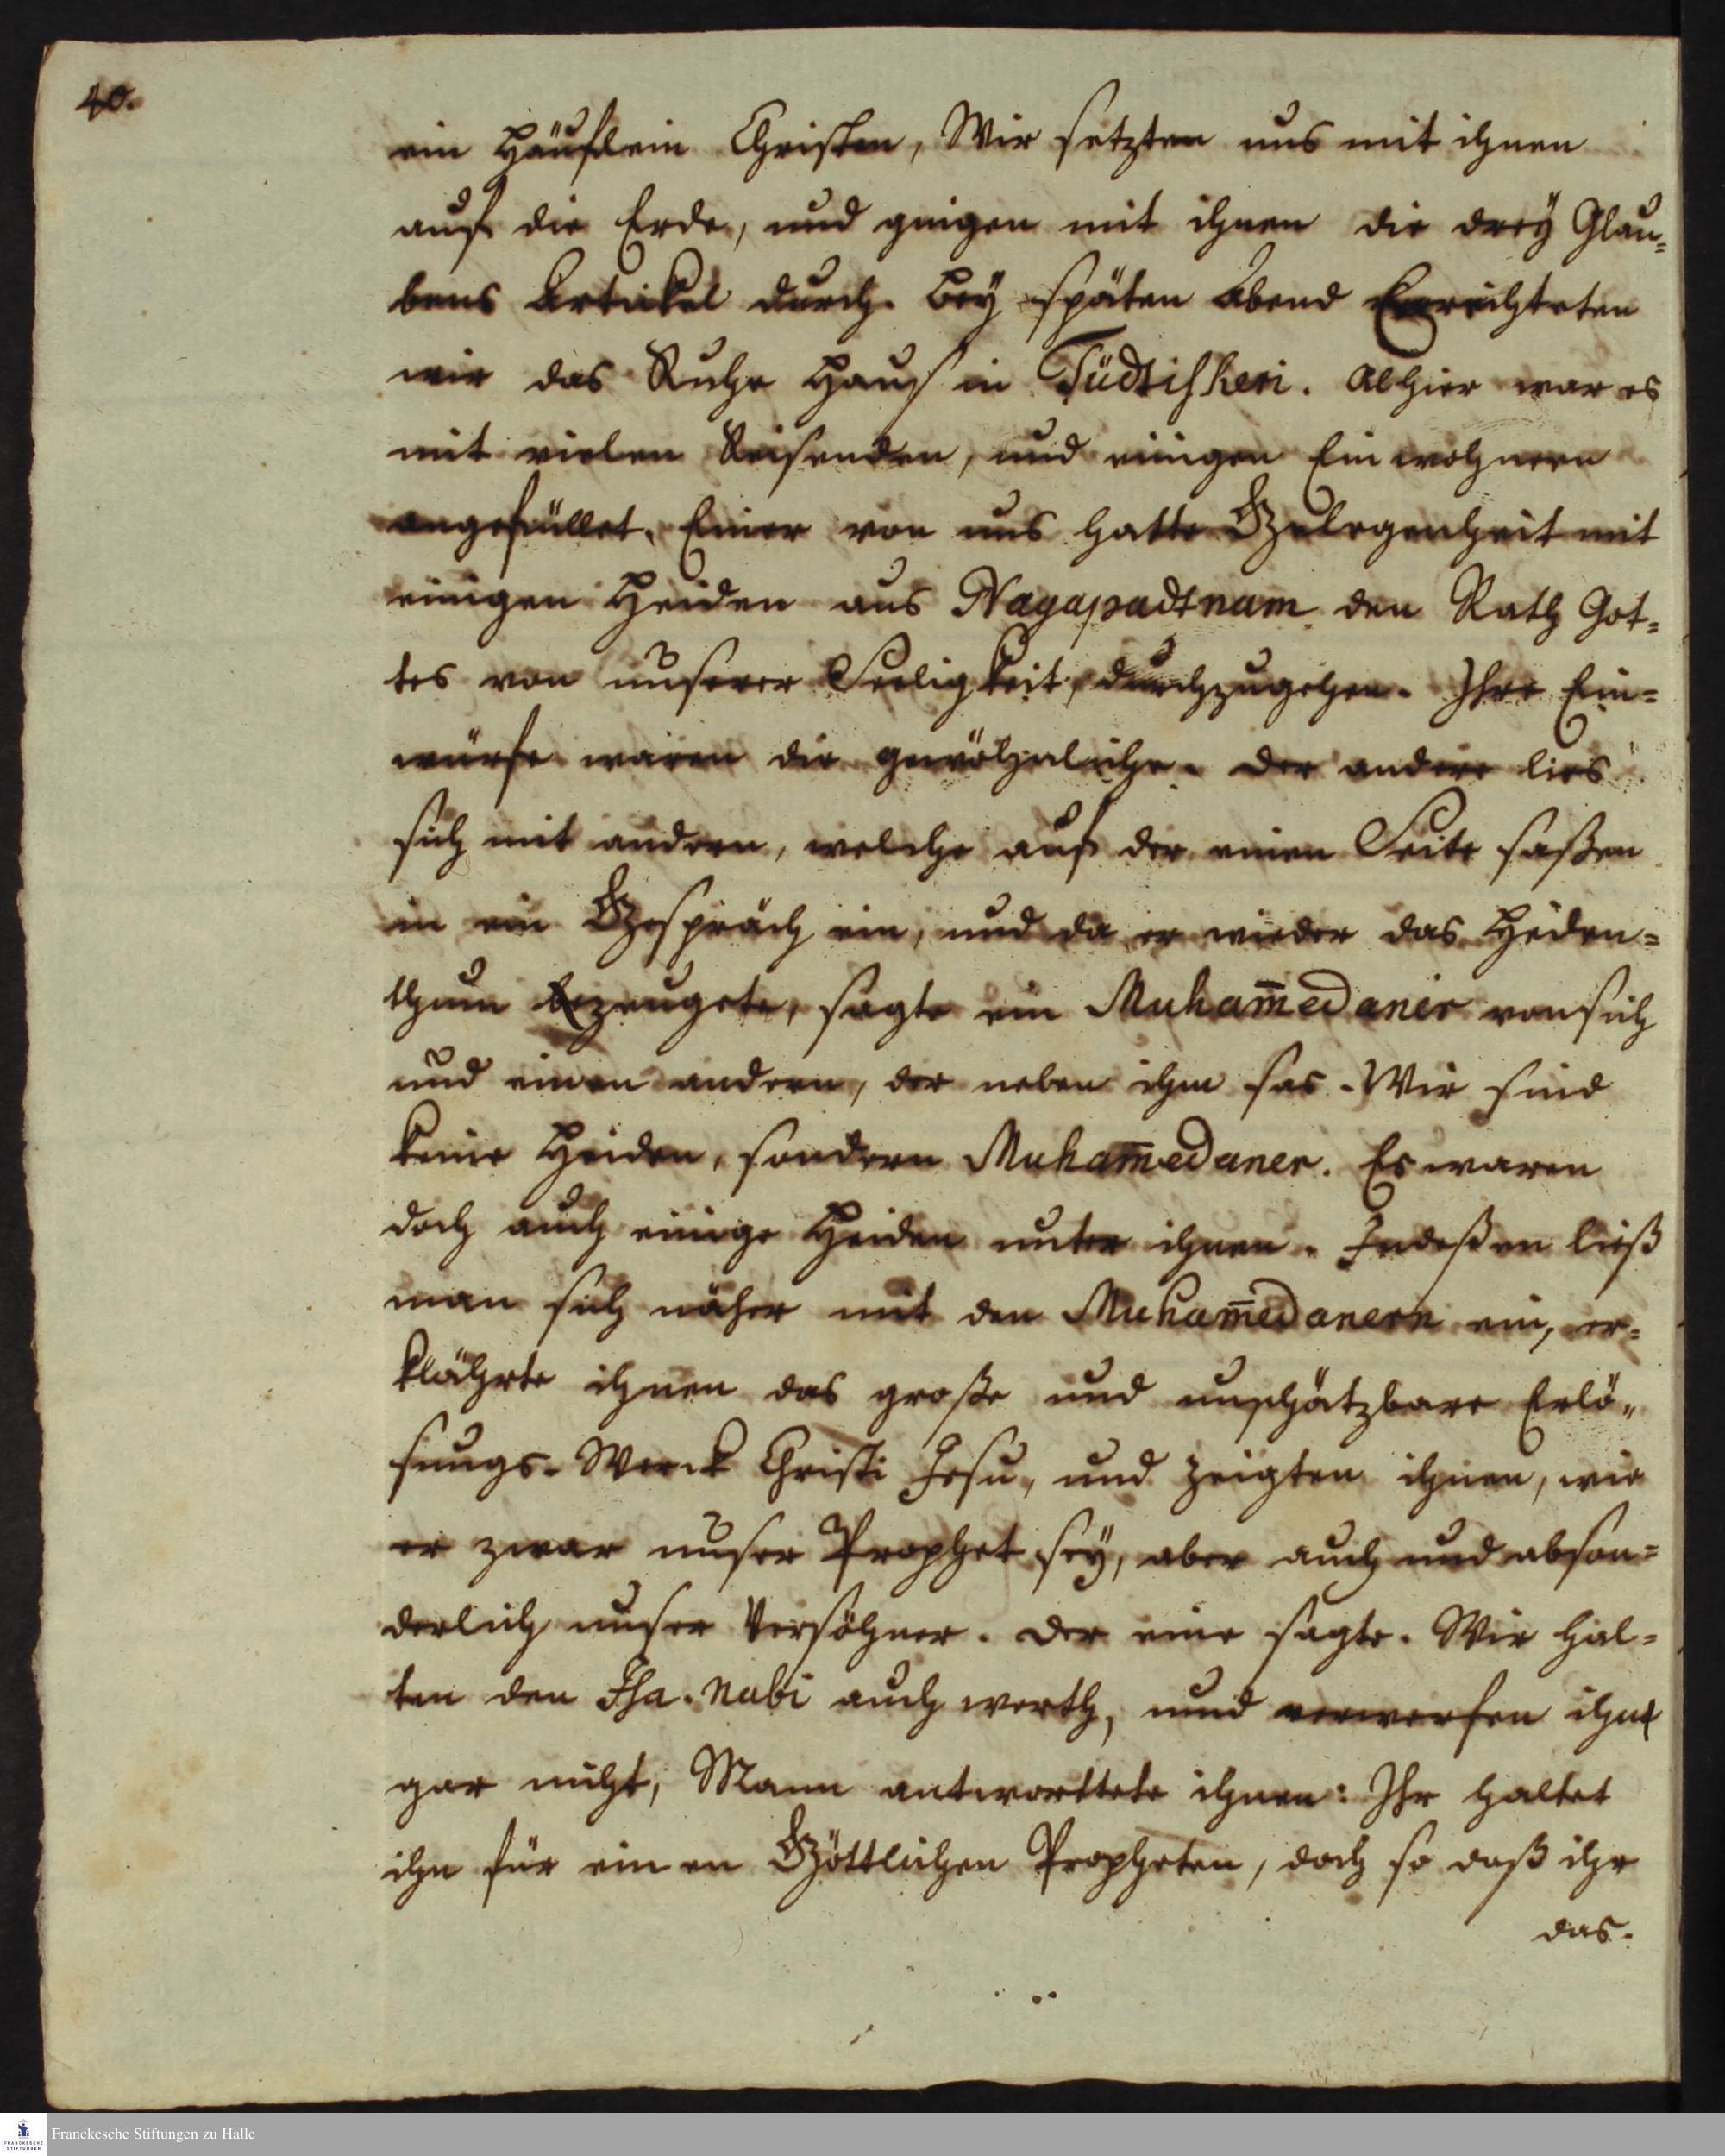 40.
ein Häuflein Christen, Wir setzten uns mit ihnen
auf die Erde, und gingen mit ihnen die drey Glau=
bens Artickel durch. Bey späten Abend Erreichteten
wir das Ruhe Hauß in Tüdtisheri. Alhier war es
mit vielen Reisenden, und einigen Einwohnern
angefüllet. Einer von uns hatte Gelegenheit mit
einigen Heiden aus Nagapadtnam den Rath Got=
tes von unserer Seeligkeit, durchzugehen. Ihre Ein=
würfe waren die gewöhnliche. Der andere lies
sich mit andern, welche auf der einen Seite saßen
in ein Gespräch ein, und da er wieder das Heiden=
thum bezeugete, sagte ein Muham̄edaner von sich
und einen andern, der neben ihm sas. Wir sind
keine Heiden, sondern Muham̄edaner. Es waren
doch auch einige Heiden unter ihnen. Indeßen ließ
man sich näher mit den Muham̄edanern ein, er=
klährte ihnen das große und unschätzbare Erlö„
sungs-Werck Christi Jesu, und zeigten ihnen, wie
er zwar unser Prophet sey, aber auch und abson=
derlich unser Versöhner. Der eine sagte. Wir hal=
ten den Isa. Nabi auch werth, und verwerfen ihn
gar nicht, Mann antworttete ihnen: Ihr haltet
ihn für einen Göttlichen Propheten, doch so daß ihr
das.
Franckesche Stiftungen zu Halle
FRANCKESCHE STIFTUNGEN